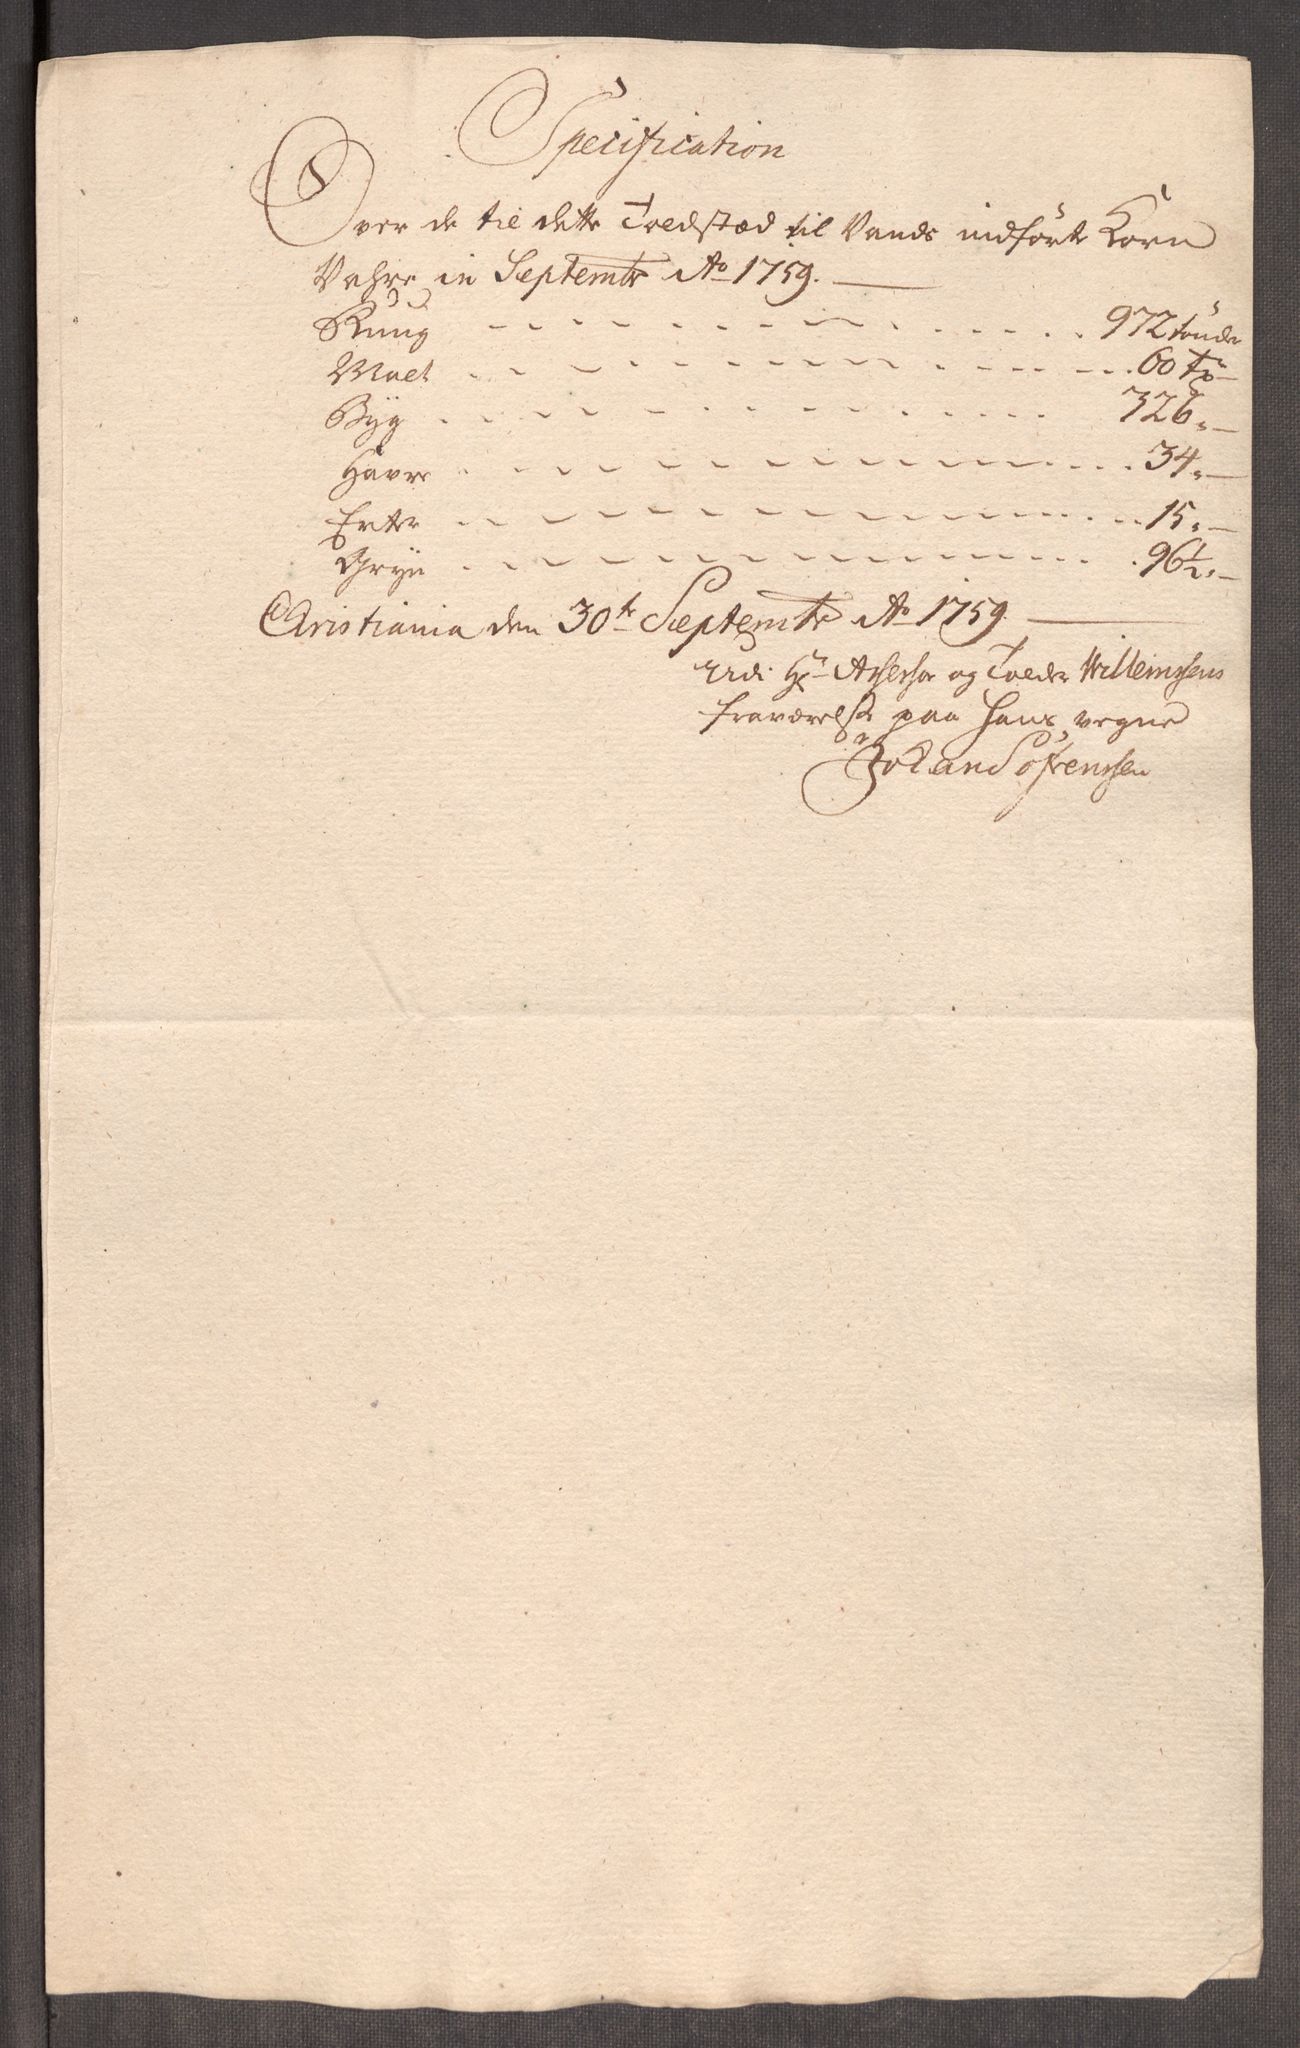 Specification
Over de til dette Toldstæd til Vands indførte Korn
Vahre in Septembr Ao 1759.
Rüüg 972 tønder
Malt 60 Tr
Byg 326 "
Havre 34 "
Erter 15 "
Gryn 96½ "
Christiania den 30te Septembr Ao 1759
Udi Hr Assessor og Tolder Willemssens
fraværelse paa hans vegne
Johan Sørenssen